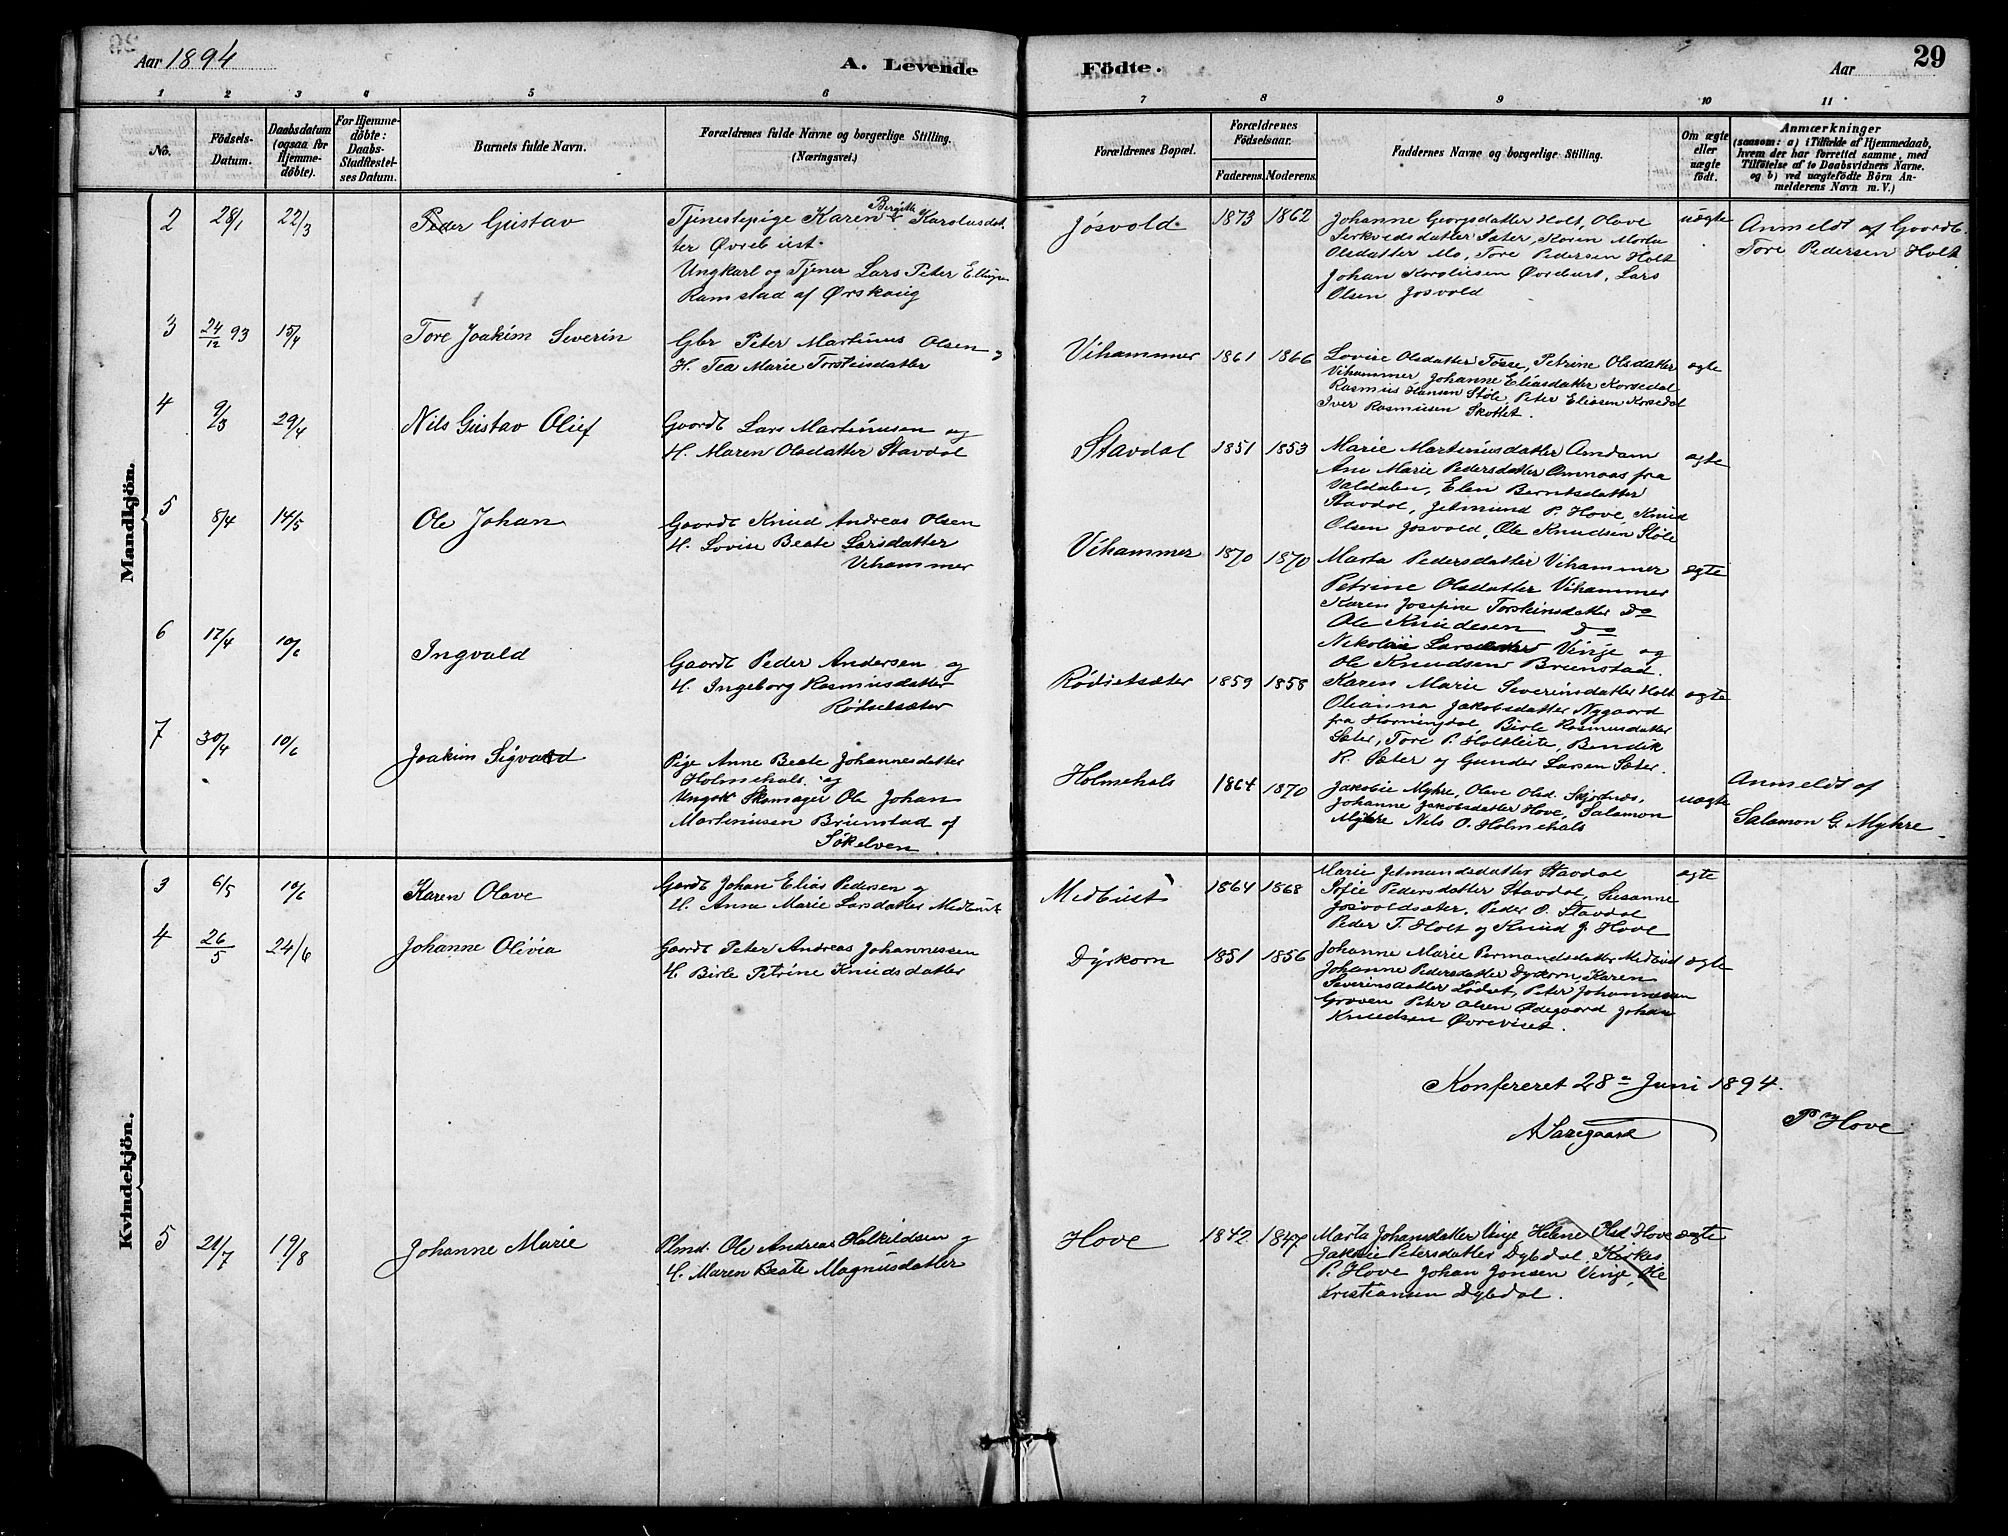 Aar 1894
A. Levende
Födte.
Aar
29
1 2 3 4 5 6 7 8 9 10 11
No.
Födsels-
Datum.
Daabsdatum
(ogsaa for
Hjemme-
døbte).
For Hjemme-
døbte:
Daabs-
Stadfæstel-
ses Datum.
Barnets fulde Navn.
Forældrenes fulde Navne og borgerlige Stilling.
(Næringsvei.)
Forældrenes Bopæl.
Forældrenes
Födselsaar.
Faderens. Moderens.
Faddernes Navne og borgerlige Stilling.
Om ægte
eller
uægte
født.
Anmærkninger
(saasom: a) i Tilfælde af Hjemmedaab,
hvem der har forrettet samme, med
Tilföielse af to Daabsvidners Navne.
og b) ved uægtefödte Börn An-
melderens Navn m. V.)
Mandkjön.
2 28/1 22/3 Peder Gustav
Tjenestepige Karen Bergithe Karolusdat
ter Øvrebust
Ungkarl og Tjener Lars Peter
Ramstad af Ørskoug
Jøsvold 1873 1862
Johanne Georgsdatter Holt, Olave
Sæter, Karen Marta
Olsdatter Mo, Tore Pedersen Holt
Johan Karolusen Øvrebust, Lars
Olsen Josvold
uægte
Anmeldt af Gaardb.
Tore Pedersen Holt
3 24/12 93 15/4 Tore Joakim Severin
Gbr Peter Martinus Olsen og
H. Tea Marie Torstensdatter
Vihammer 1861 1866
Lovise Olsdatter Tøsse, Petrine Olsdatter
Vihammer Johanne Eliasdatter Korsedal
Rasmus Hansen Støle, Peter Eliasen Korsedal
Iver Rasmusen Skottet.
ægte
4 9/3 29/4 Nils Gustav Oluf
Gaardb Lars Martinusen og
H. Maren Olsdatter Stavdal
Stavdal 1851 1853
Marie Martinusdatter Amdam
Ane Marie Pedersdatter Omnaas fra
Valdalen, Elen Berntsdatter
Stavdal, Jetmund P. Hove Knud
Olsen Josvold, Ole Knudsen Støle
ægte
5 8/4 14/5 Ole Johan
Gaardb Knud Andreas Olsen
H. Lovise Beate Larsdatter
Vihammer
Vihammer 1870 1870
Marta Pedersdatter Vihammer
Petrine Olsdatter Vihammer
Karen Josefine Torstensdatter Do
Ole Knudesen Do
Nekolai Vinje og
Ole Knudsen Brunstad.
ægte
6 17/4 10/6 Ingvald
Gaardb Peder Andersen og
H. Ingeborg Rasmusdatter
Rødsetsæter
Rødsetsæter 1859 1858
Karen Marie Severinsdatter Holt
Olianna Jakobsdatter Nygaard
fra Horningdal, Birte Rasmusdatter
Sæter, Tore P. Holtleite, Bendik
R. Sæter og Gunder Larsen Sæter.
ægte
7 30/4 10/6 Joakim Sigvard
Pige Anne Beate Johannesdatter
Holmehals og
Ungk Skomager Ole Johan
Martinusen Brunstad af
Søkelven
Holmehals 1864 1870
Jakobie Myhre, Olave Olsd. Skjodnes,
Johanne Jakobsdatter Hove, Salamon
Myhre Nils O. Holmehals
uægte
Anmeldt af
Salamon G. Myhre
Kvindekjön.
3 6/5 10/6 Karen Olave
Gardb Johan Elias Pedersen og
H. Anna Marie Larsdatter Medbust
Medbust 1864 1868
Marie Jetmundsdatter Stavdal
Sofie Pedersdatter Stavdal, Susanne
Josvoldsæter. Peder O. Stavdal
Peder T. Holt og Knud J. Hove
ægte
4 26/5 24/6 Johanne Olivia
Gaardb Peter Andreas Johannessen
H. Birte Petrine Knudsdatter
Dyrkorn 1851 1856
Johanne Marie Permandsdatter Medbust
Johanne Pedersdatter Dyrkorn, Karen
Severinsdatter Lødset, Peter Johannesen
Groven Peter Olsen Ødegaard Johan
Knudsen Øvrevust.
ægte
Konfereret 28de Juni 1894.
P Hove
5 21/7 19/8 Johanne Marie
Plmd. Ole Andreas Halkildsen og
H. Maren Beate Magnusdatter
Hove 1842 1847
Marta Johansdatter Vinje, Helene Olsd Hove
Jakobie Petersdatter Dybdal, Kirkes
P. Hove Johan Jonsen Vinje, Ole
Kristiansen Dybdal.
ægte